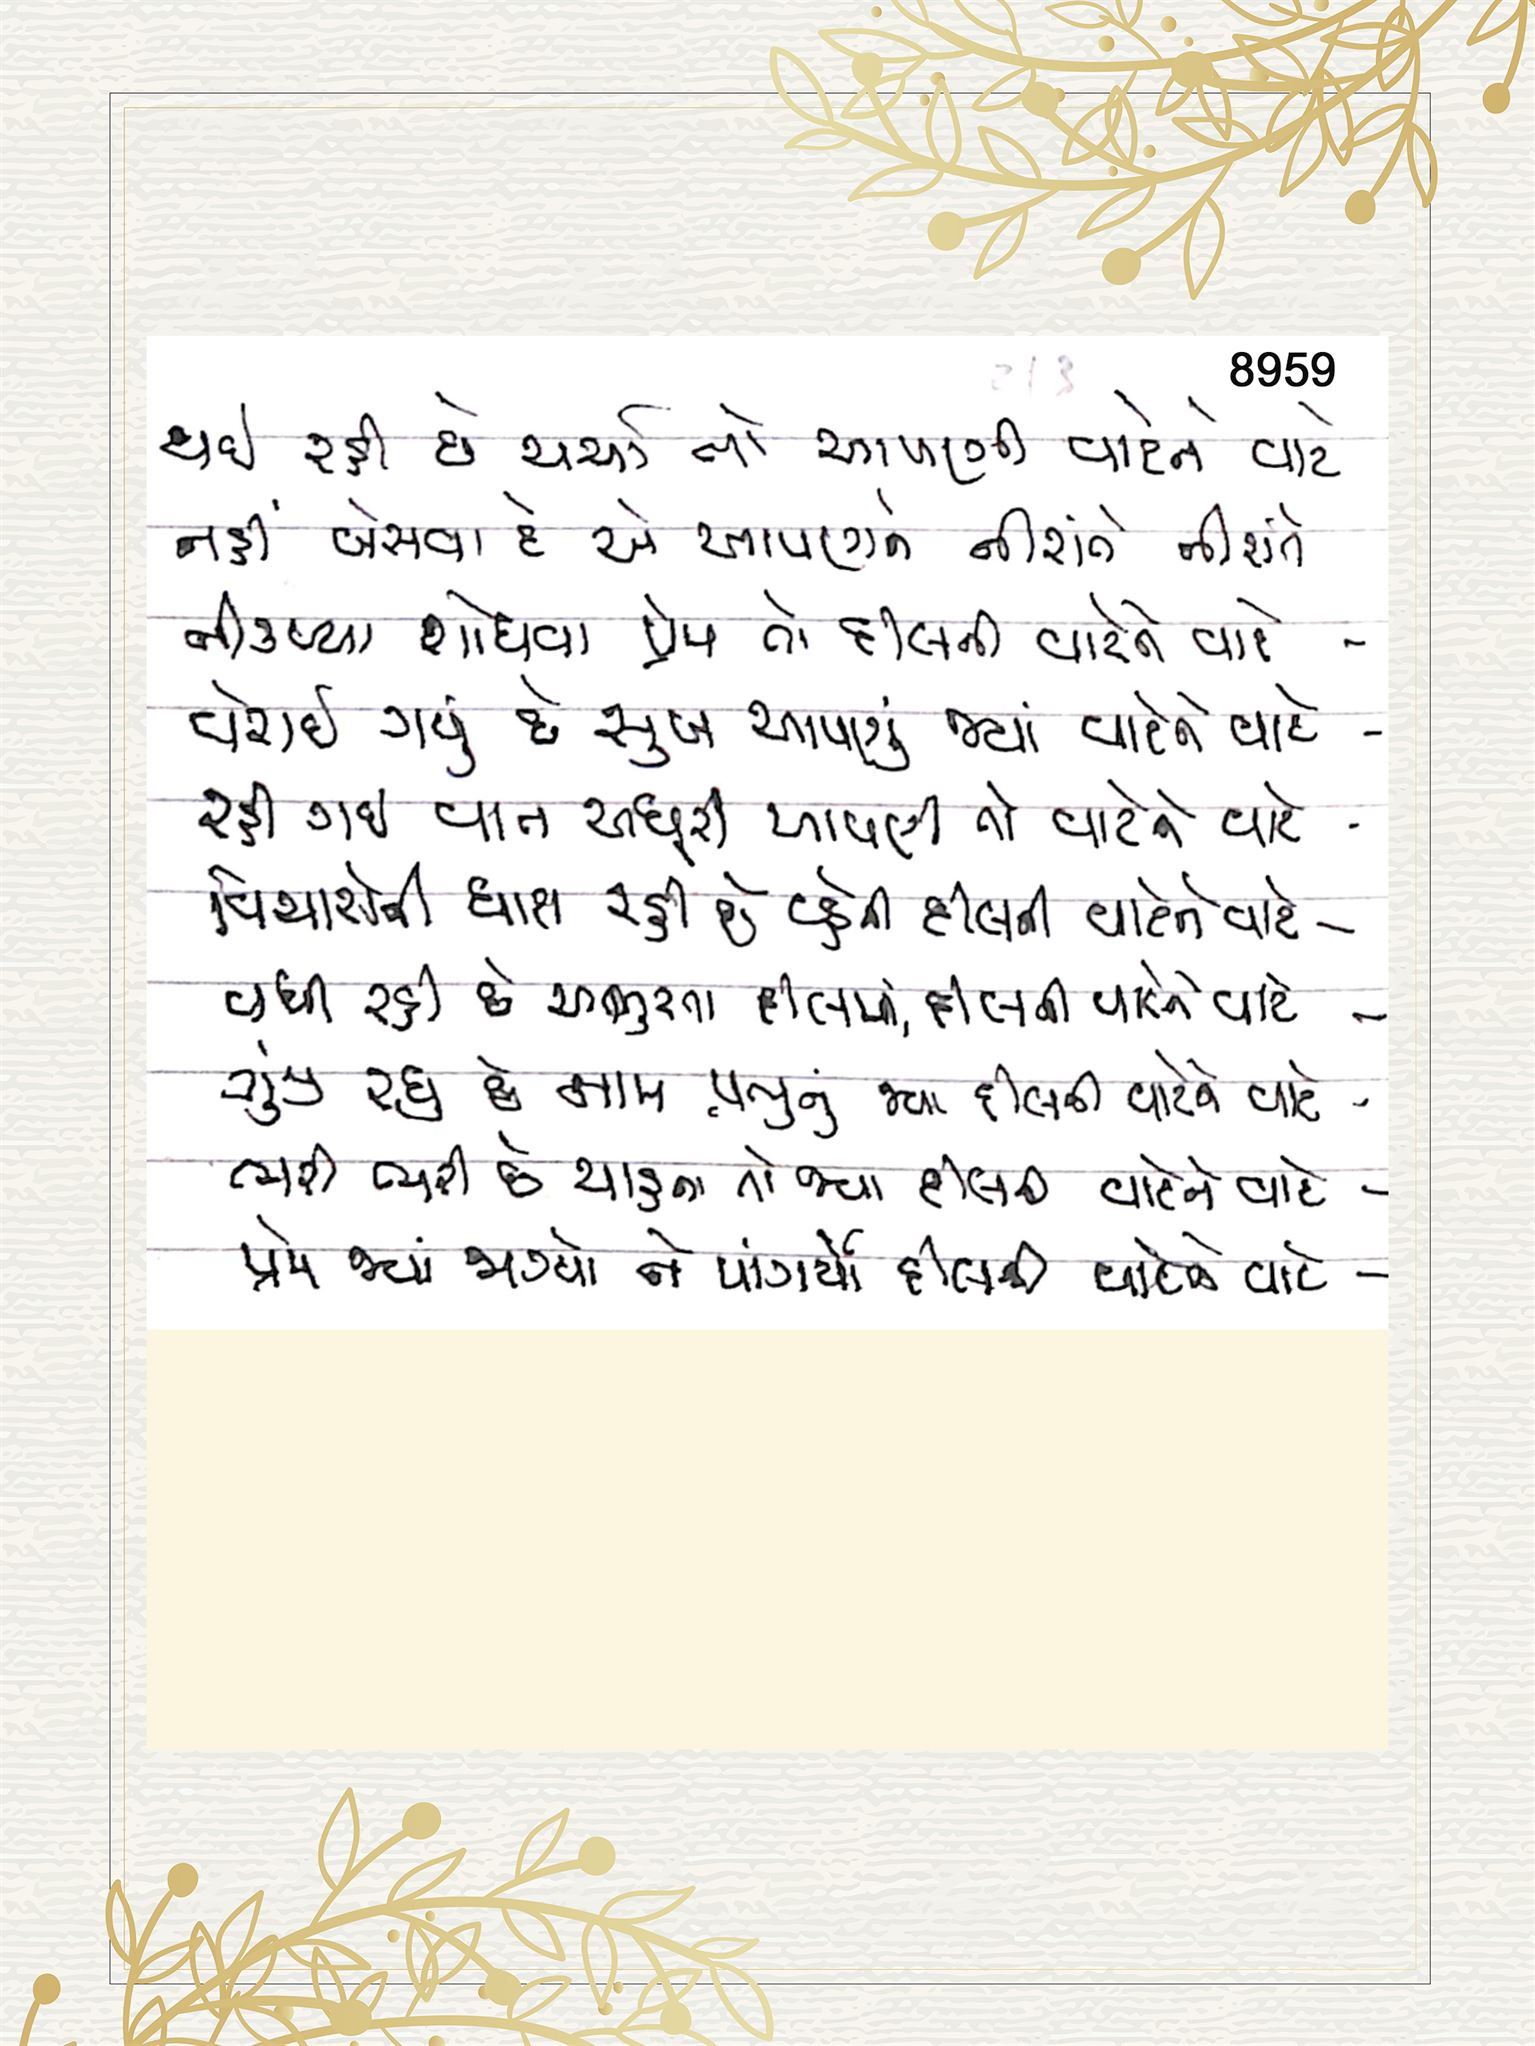 8959
થઈ રહી છે ચર્ચા તો આપણી વાટેને વાટે
નહીં બેસવા દે એ આપણને નીરાંતે નીરાંતે
નીકળ્યા શોધવા પ્રેમ તો દીલની વાટેને વાટે -
વેરાઈ ગયું છે સુખ આપણું જ્યાં વાટેને વાટે -
રહી ગઈ વાત અધૂરી આપણી તો વાટેને વાટે -
વિચારોની ધારા રહી છે વહેતી દીલની વાટેને વાટે -
વધી રહી છે આતુરતા દીલમાં, દીલની વાટેને વાટે -
ગુંજી રહ્યુ છે નામ પ્રભુનું જ્યા દીલની વાટેને વાટે -
ભરી ભરી છે ભાવુકતા તો જ્યા દીલની વાટેને વાટે -
પ્રેમ જ્યાં જાગ્યો ને પાંગર્યો દીલની વાટેને વાટે -